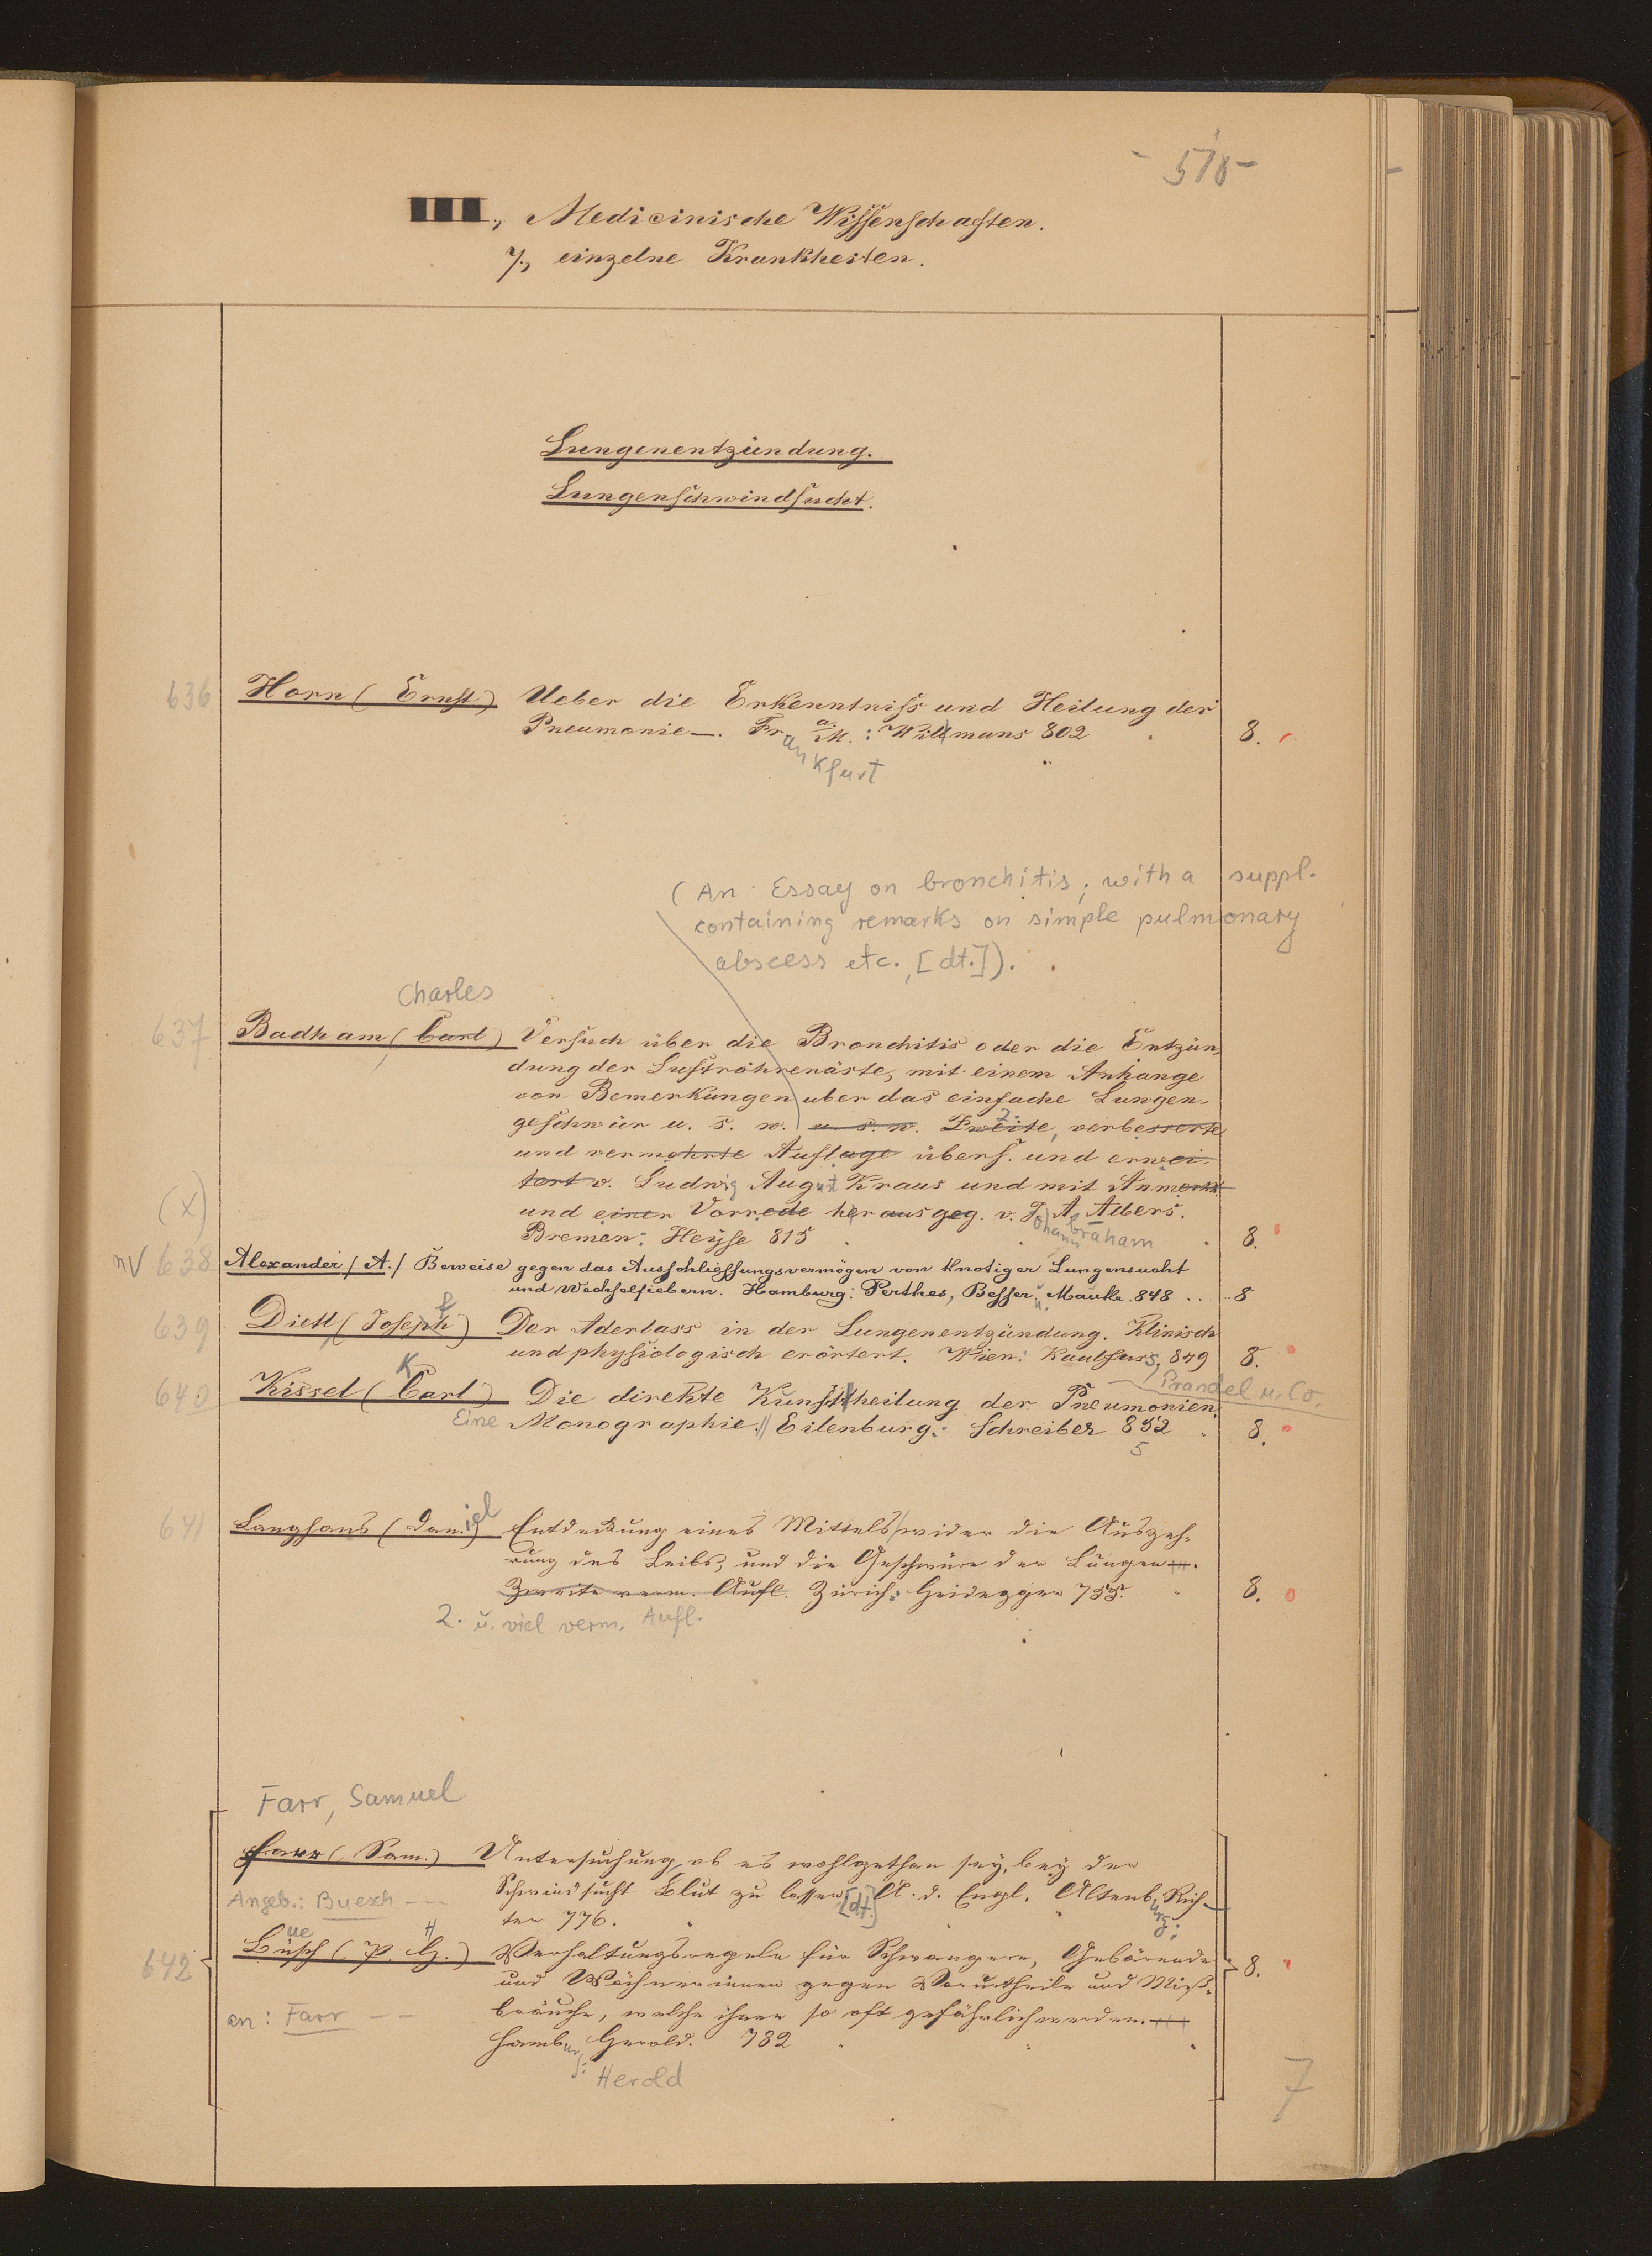 - 578 -
III., Medicinische Wissenschaften.
7., einzelne Krankheiten.
Lungenentzündung.
Lungenschwindsucht.
636 Horn (Ernst) Ueber die Erkenntniss und Heilung der
Pneumonie —. Fr. a. M.: Willmans 802 8.
ankfurt
(An Essay on bronchitis; with a suppl.
containing remarks on simple pulmonary
abscess etc., [dt.]).
Charles
637 Badham (Carl) Versuch über die Bronchitis oder die Entzün-
dung der Luftröhrenäste, mit einem Anhange
von Bemerkungen uber das einfache Lungen-
geschwür u. s. w. u. s. w. Zweite, verbesserte 2.
und vermehrte Auflage übers. und erwei-
tert v. Ludwig August Kraus und mit Anmerk.
(x) und einer Vorrede herausgeg. v. J. A. Albers.
ohann braham
Bremen: Heyse 815 8.
nV 638 Alexander /A./ Beweise gegen das Ausschliessungsvermögen von knotiger Lungensucht
und Wechselfiebern. Hamburg: Perthes, Besser u. Mauke. 848 .. ..8
639 Dietl (Joseph) Der Aderlass in der Lungenentzündung. Klinisch
f
und physiologisch erörtert. Wien: Kaulfuss, 849 8.
Prandel u. Co.
K
640 Kissel (Carl) Die direkte Kunstheilung der Pneumonien.
Eine Monographie. Eilenburg: Schreiber 852 8.
5
641 Langhans (Daniel) Entdeckung eines Mittels wider die Auszeh-
rung des Leibs, und die Geschwüre der Lungen.
Zweite verm. Aufl. Zürich: Heidegger 755. 8.
2. u. viel verm. Aufl.
Farr, Samuel
Farr (Sam.) Untersuchung, ob es wohlgethan sey, bey der
Schwindsucht Blut zu lassen [dt.] A. d. Engl. Altenburg: Rich-
Angeb.: Buesch — —
ter 776.
ue H
642 Büsch (P. G.) Verhaltungsregeln für Schwangere, Gebärende 8.
und Wöchnerinnen gegen Vorurtheile und Miß-
bräuche, welche ihnen so oft gefährlich werden.
an: Farr — —
Hamburg: Gerold. 782
Herold
7